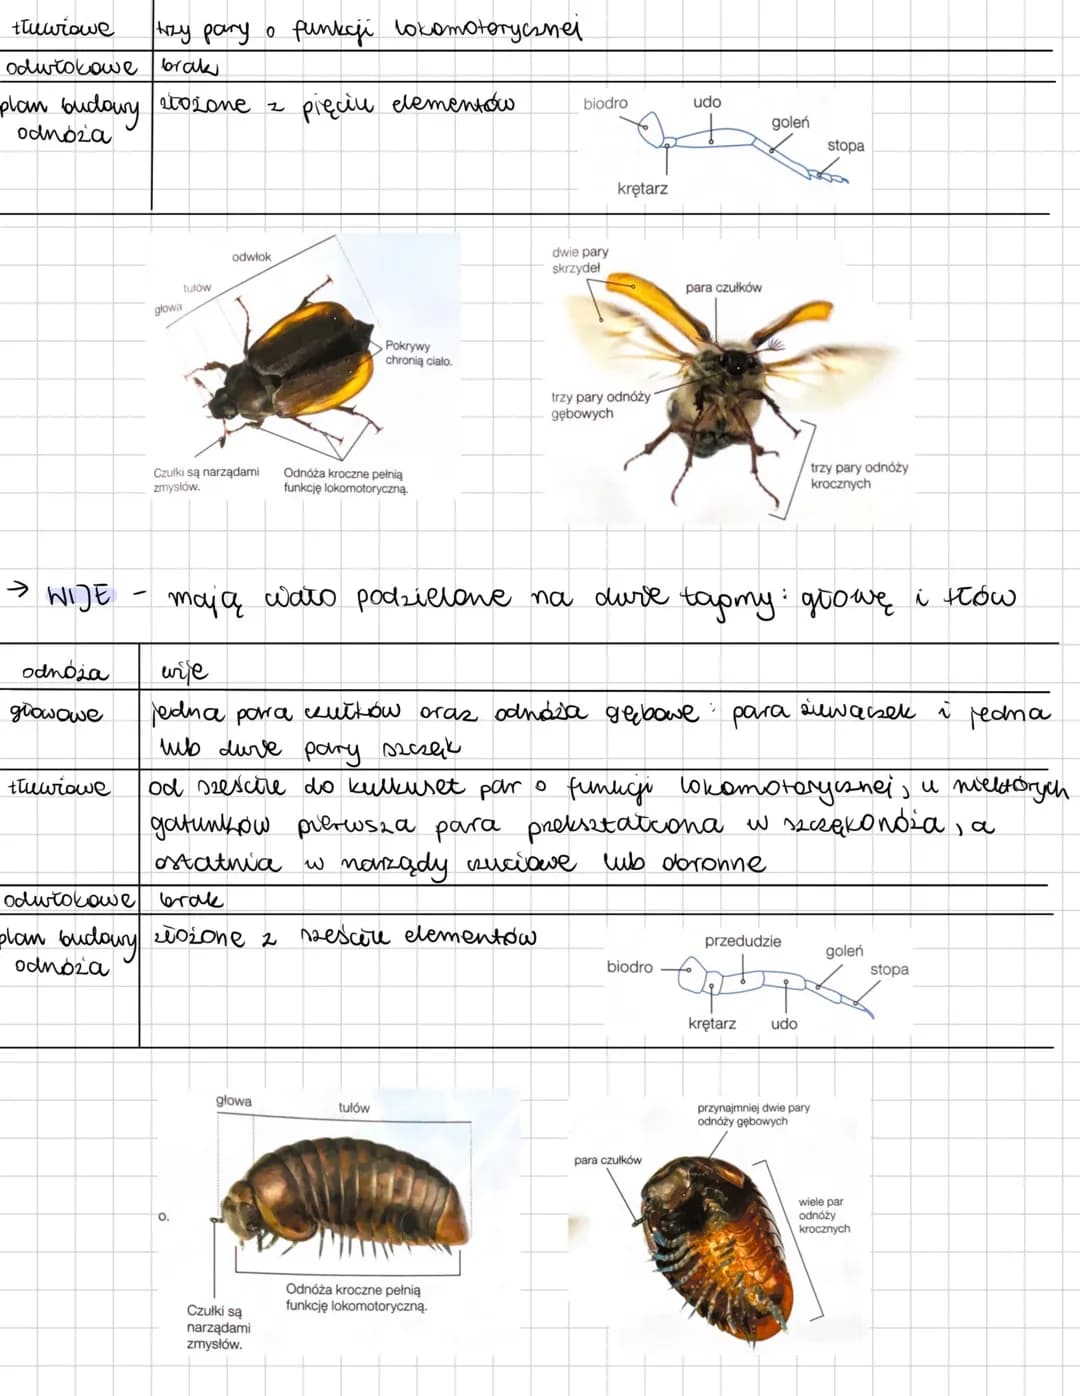 tułowiowe trzy pary o funkcji lokomotorycznej
odwłokowe brak
plan budowy złożone z pięciu elementów
odnóża
biodro
udo
goleń
stopa
krętarz
odwłok
tułów
głowa
Pokrywy
chronią ciało.
Czułki są narządami
zmysłów.
Odnóża kroczne pełnią
funkcję lokomotoryczną.
dwie pary
skrzydeł
para czułków
trzy pary odnóży
gębowych
trzy pary odnóży
krocznych
→ WIJE - mają ciało podzielone na dwie tagmy: głowę i tłów
odnóża wije
głowowe jedna para czułków oraz odnóża gębowe: para żuwaczek i jedna
lub dwie pary szczęk
tłuwiowe od sześciu do kilkuset par o funkcji lokomotorycznej, u niektórych
gatunków pierwsza para przekształcona w szczękonóża, a
ostatnia w narządy czuciowe lub obronne
odwłokowe brak
plan budowy złożone z sześciu elementów
odnóża
biodro
przedudzie
goleń
stopa
krętarz
udo
głowa
tułów
o.
Odnóża kroczne pełnią
funkcję lokomotoryczną.
Czułki są
narządami
zmysłów.
przynajmniej dwie pary
odnóży gębowych
para czułków
wiele par
odnóży
krocznych